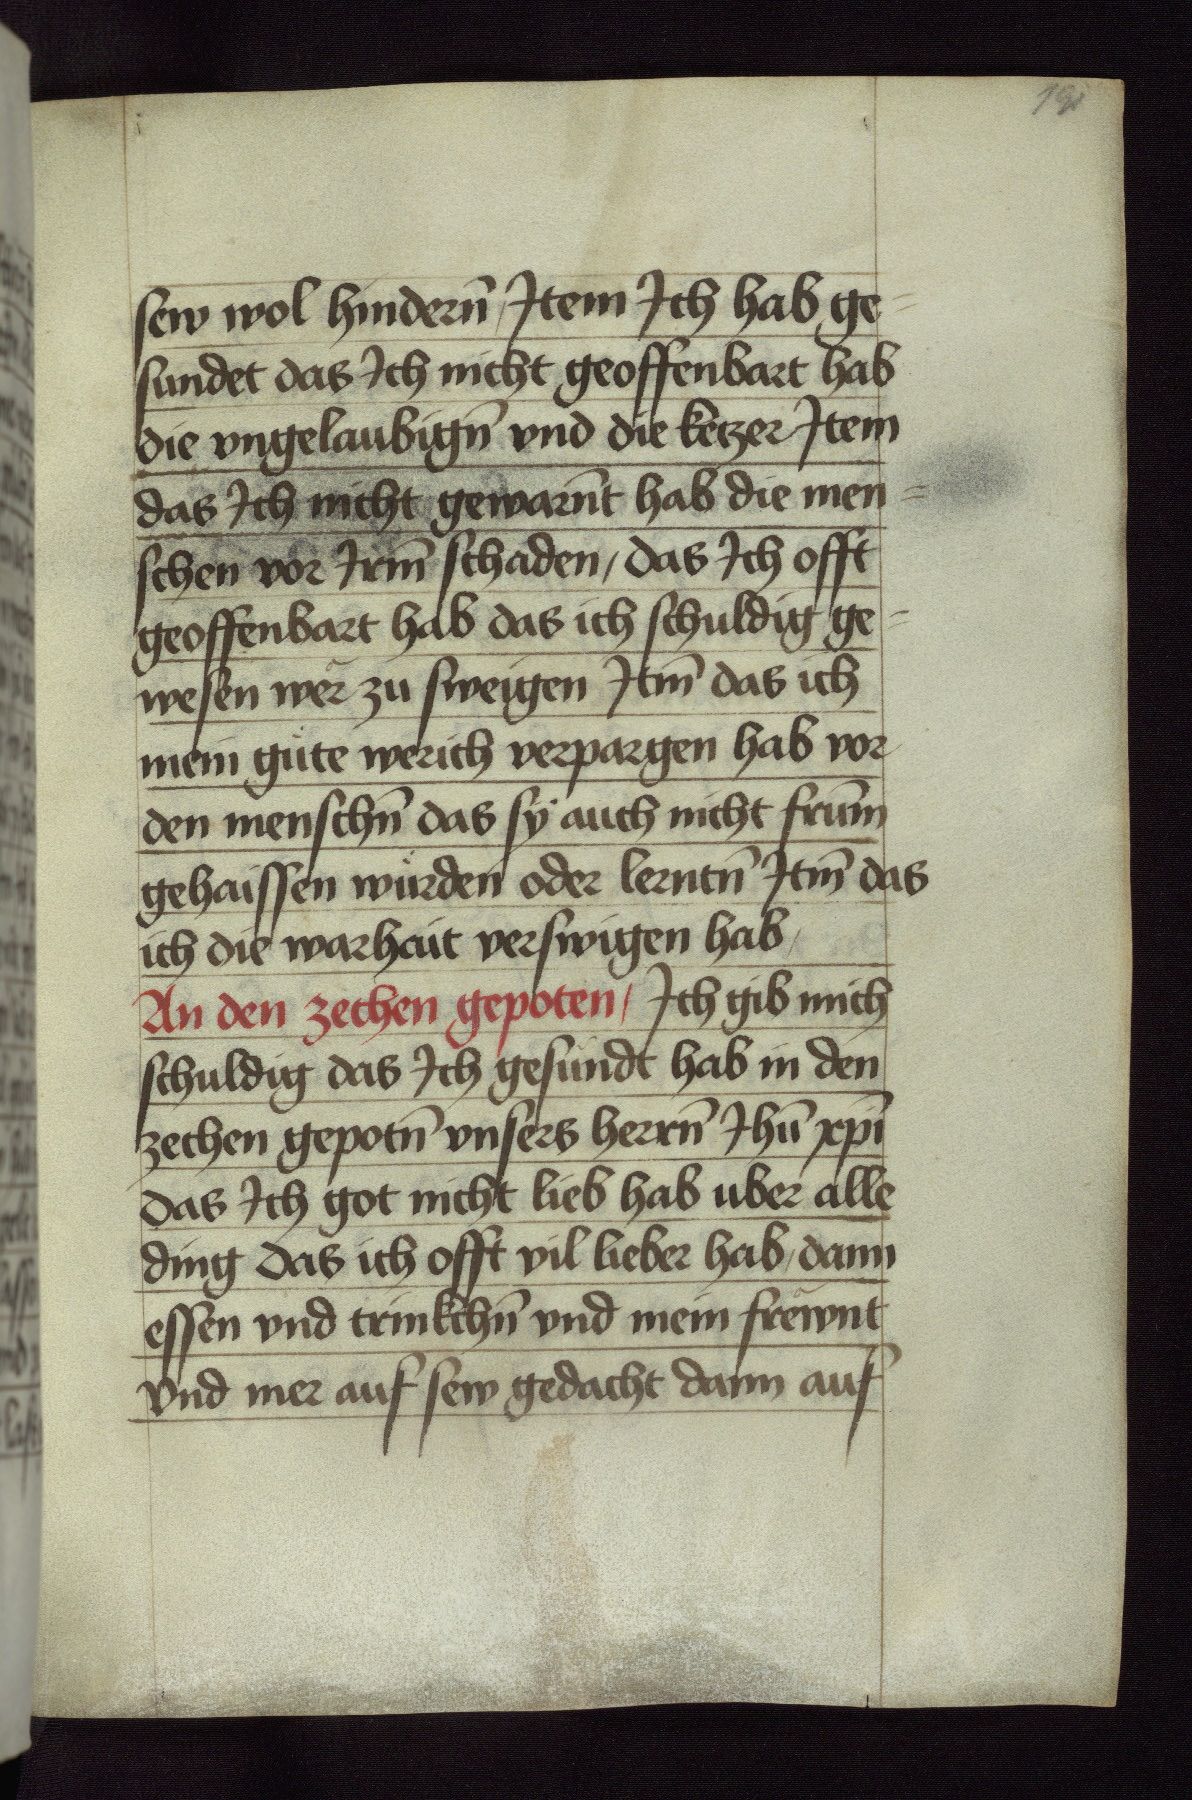 sew wol hindern̄ / Jtem Jch hab ge=
sundet das Jch nicht geoffenbart hab
die vngelaubign̄ vnd die ketzer Jtem
das Jch nicht gewarn̄t hab die men=
schen vor Jrm̄ schaden / das Jch offt
geoffenbart hab das ich schuldig ge=
wesen wër zu sweigen Jtm̄ das ich
mein gůte werich verpargen hab vor
den menschn̄ das sÿ auch nicht frūm
gehaissen wůrden oder lerntn̄ Jtm̄ das
ich die warhait verswigen hab /
An den zechen gepoten / Jch gib mich
schuldig das Jch gesündt hab in den
zechen gepotn̄ vnsers herrn̄ Jhū xp̄i
das Jch got nicht lieb hab uber alle
ding das ich offt vil lieber hab / dann
essen vnd trinkchn̄ vnd mein frëwnt
vnd mer auf sew gedacht dann auf